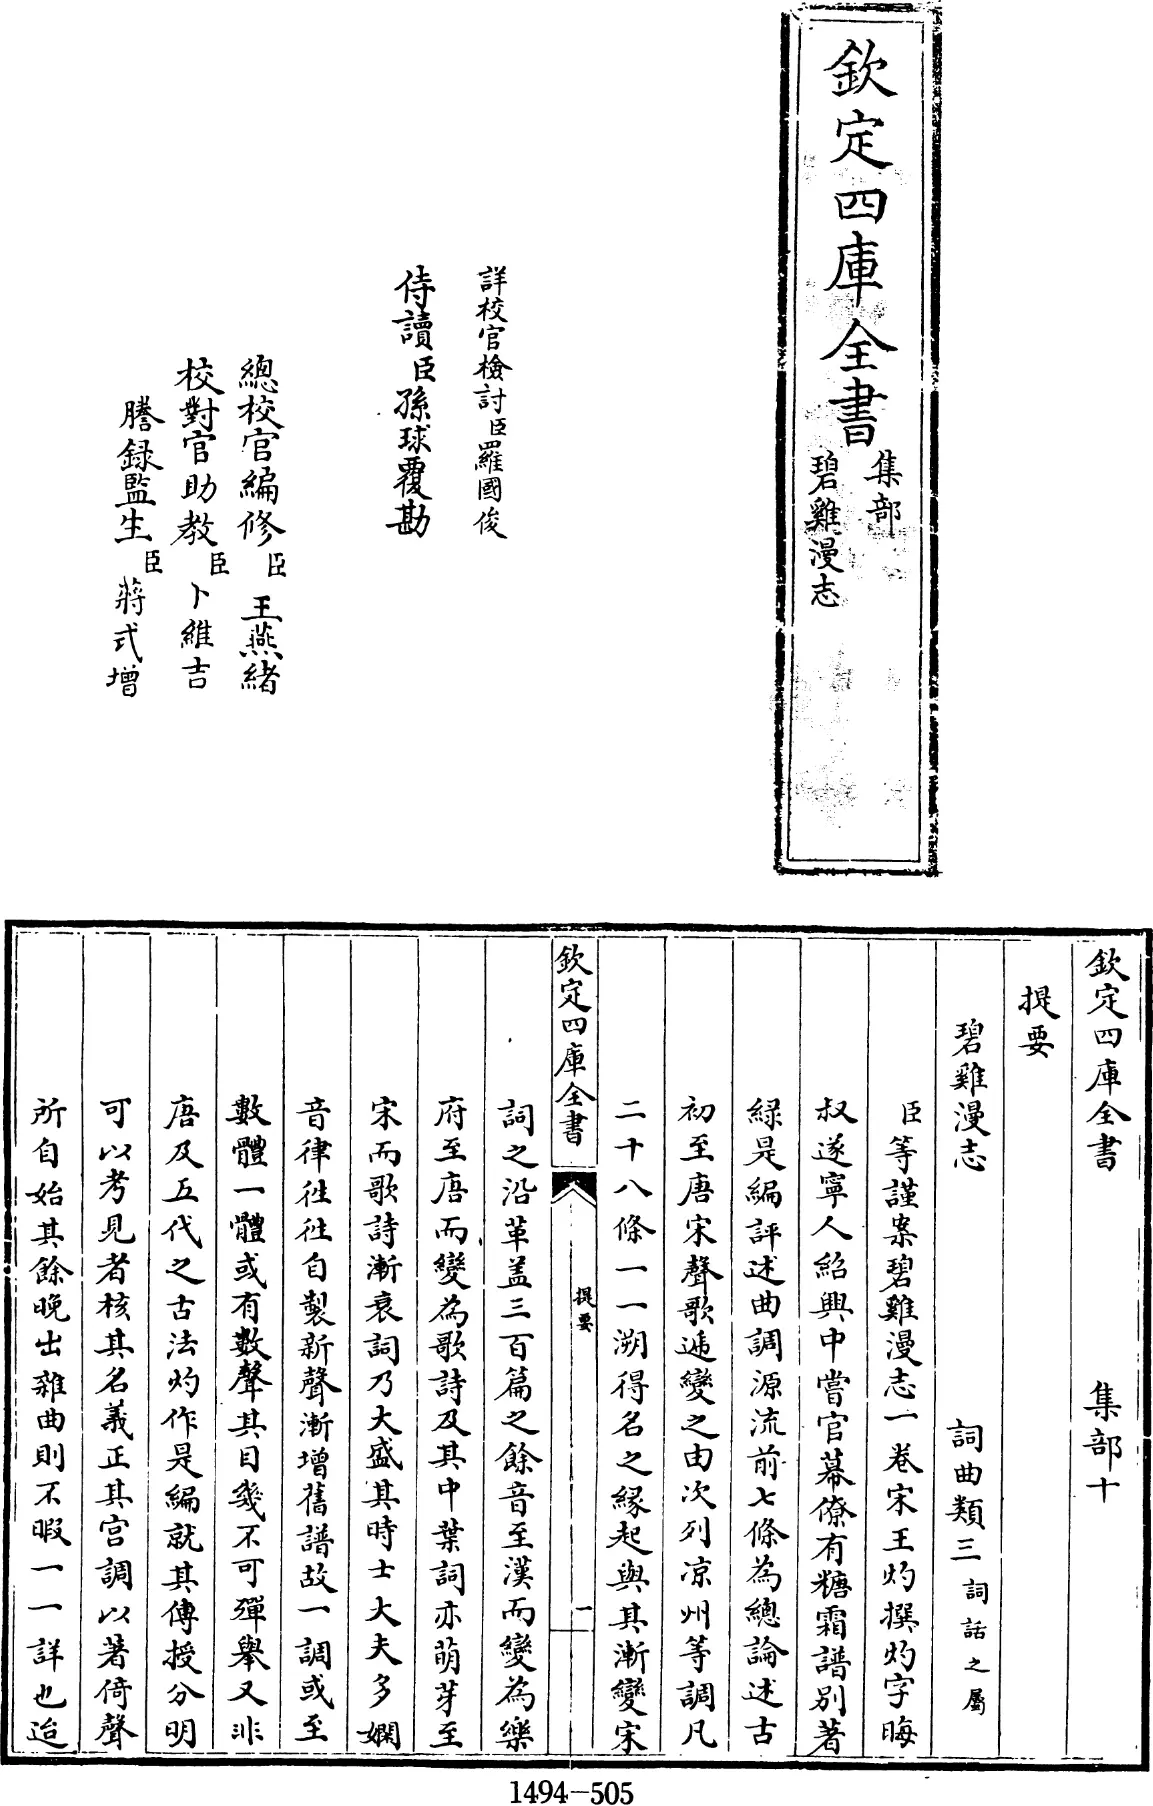 欽定四庫全書
集部
碧雞漫志
詳校官檢討臣羅國俊
侍讀臣孫球覆勘
總校官編修臣王燕緒
校對官助教臣卜維吉
謄録監生臣蔣式增
欽定四庫全書 集部十
提要
碧雞漫志 詞曲類三詞話之屬
臣等謹案碧雞漫志一卷宋王灼撰灼字晦
叔遂寧人紹興中嘗官幕僚有糖霜譜别著
緑是編評述曲調源流前七條為總論述古
初至唐宋聲歌遞變之由次列凉州等調凡
二十八條一一溯得名之縁起與其漸變宋
欽定四庫全書 提要 一
詞之沿革盖三百篇之餘音至漢而變為樂
府至唐而變為歌詩及其中葉詞亦萌芽至
宋而歌詩漸衰詞乃大盛其時士大夫多嫻
音律往往自製新聲漸增舊譜故一調或至
數體一體或有數聲其目幾不可殫舉又非
唐及五代之古法灼作是編就其傳授分明
可以考見者核其名義正其宫調以著倚聲
所自始其餘晚出雜曲則不暇一一詳也迨
1494-505